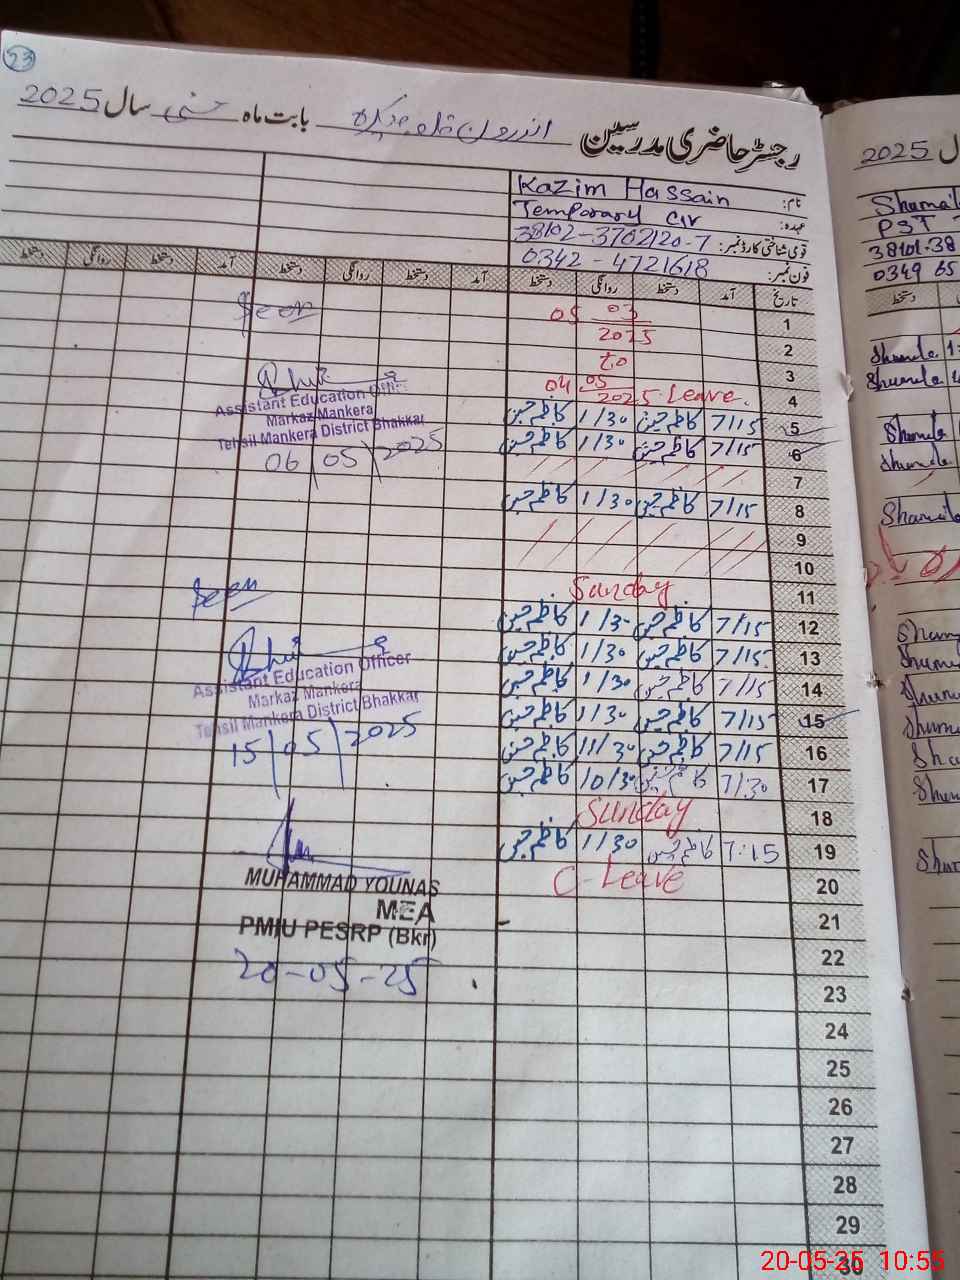 23
رجسٹر حاضری مدرسین اندرون قلعہ منکیرہ بابت ماہ مئی سال 2025
نام: Kazim Hassain
عہدہ: Temporary
قومی شناختی کارڈ نمبر: 38102-3702120-7
فون نمبر: 0342-4721618
تاریخ آمد دستخط روانگی دستخط آمد دستخط روانگی دستخط آمد دستخط روانگی دستخط
1 03
2 2025
3 to
4 04 05 2025 Leave.
5 7/15 کاظم حسین 1/30 کاظم حسین
6 7/15 کاظم حسین 1/30 کاظم حسین
7
8 7/15 کاظم حسین 1/30 کاظم حسین
9
10
11 Sunday
12 7/15 کاظم حسین 1/30 کاظم حسین
13 7/15 کاظم حسین 1/30 کاظم حسین
14 7/15 کاظم حسین 1/30 کاظم حسین
15 7/15 کاظم حسین 1/30 کاظم حسین
16 7/15 کاظم حسین 11/30 کاظم حسین
17 7/30 کاظم حسین 10/30 کاظم حسین
18 Sunday
19 7:15 کاظم حسین 1/30 کاظم حسین
20 C-Leave
21
22
23
24
25
26
27
28
29
30
Seen
Assistant Education Officer
Markaz Mankera
Tehsil Mankera District Bhakkar
06/05/2025
Seen
Assistant Education Officer
Markaz Mankera
Tehsil Mankera District Bhakkar
15/05/2025
MUHAMMAD YOUNAS
MEA
PMIU PESRP (Bkr)
20-05-25
2025
PST
38101-38
0349 65
دستخط
20-05-25 10:55